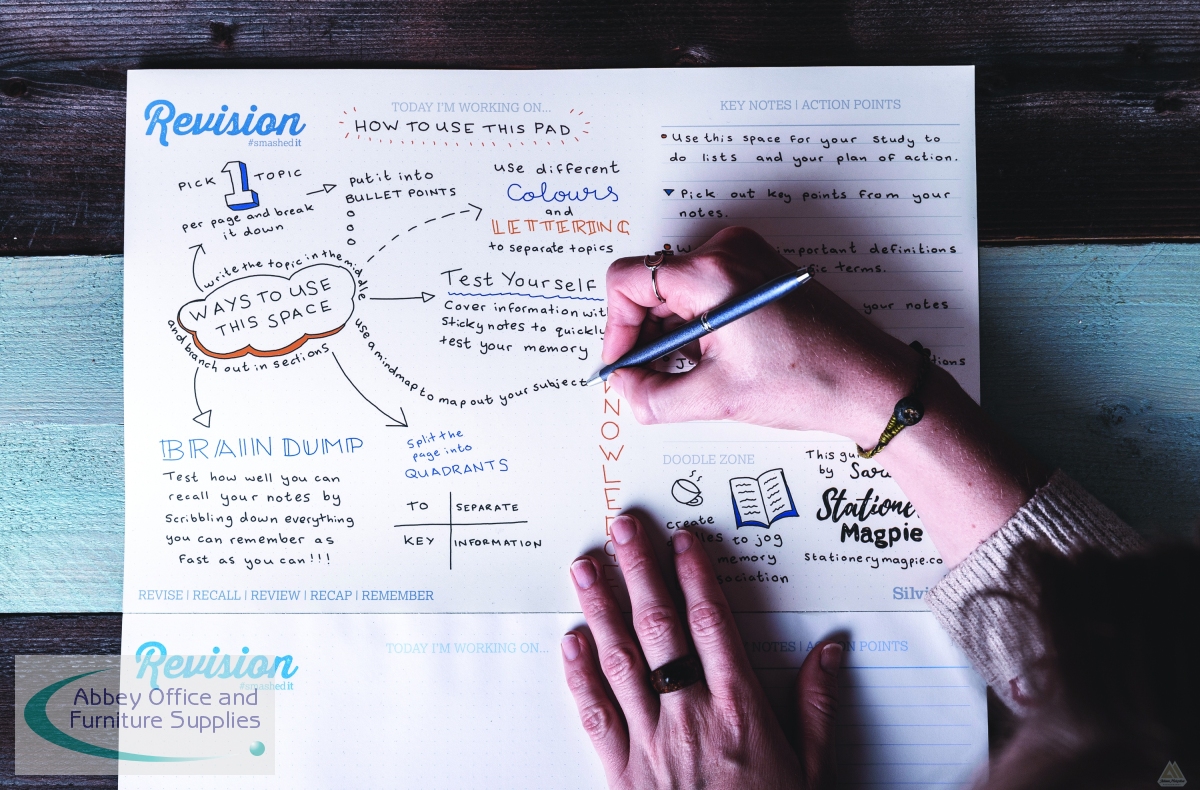 Revision
#smashedit
TODAY I'M WORKING ON...
HOW TO USE THIS PAD
PICK 1 TOPIC
per page and break
it down
put it into
BULLET POINTS
use different
Colours
and
LETTERING
to separate topics
write the topic in the middle
WAYS TO USE
THIS SPACE
and branch out in sections
Test Yourself
Cover information with
Sticky notes to quickly
test your memory
use a mindmap to map out your subject
BRAIN DUMP
Test how well you can
recall your notes by
Scribbling down everything
you can remember as
Fast as you can!!!
Split the
page into
QUADRANTS
TO SEPARATE
KEY INFORMATION
KNOWLEDGE
REVISE | RECALL | REVIEW | RECAP | REMEMBER
KEY NOTES | ACTION POINTS
Use this space for your study to
do lists and your plan of action.
Pick out key points from your
notes.
important definitions
terms.
your notes
DOODLE ZONE
create
to jog
memory
This
by
Stationery
Magpie
Stationerymagpie.co
Revision
#smashedit
TODAY I'M WORKING ON...
NOTES | ACTION POINTS
Abbey Office and
Furniture Supplies